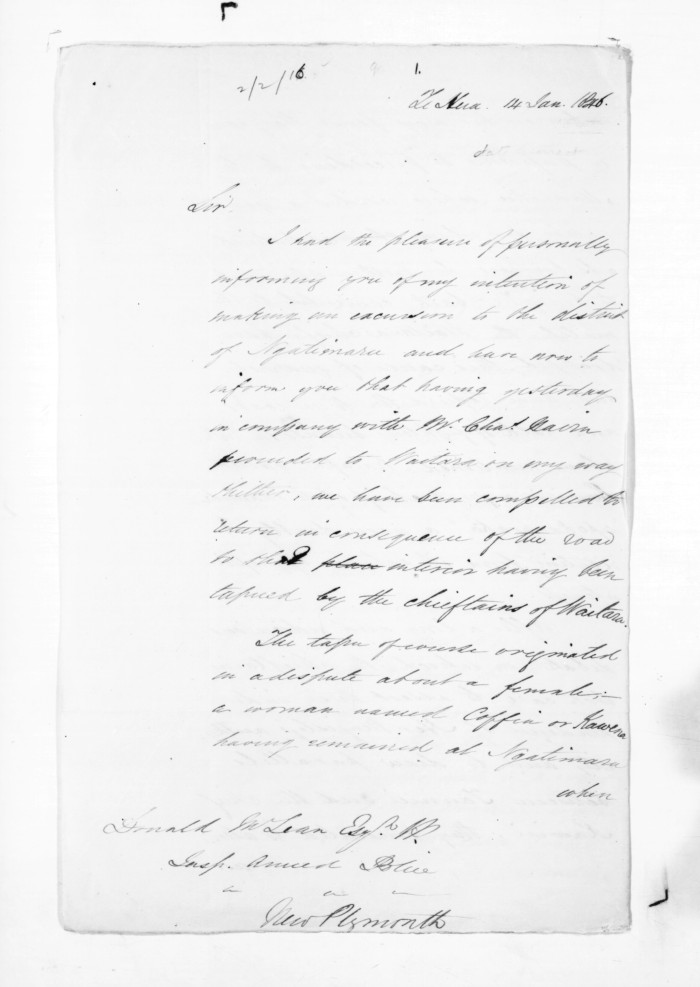 2/2/16
1.
Te Hua. 14 Jan. 1846.
Sir
I had the pleasure of personally
informing you of my intention of
making an excursion to the district
of Ngatimaru and have now to
inform you that having yesterday
in company with Mr. Chas. Davis
proceeded to Waitara on my way
thither, we have been compelled to
return in consequence of the road
to the place interior having been
tapued by the chieftains of Waitara.
The tapu of course originated
in a dispute about a female;—
a woman named Coffin or Kawena
having remained at Ngatimaru
when
Donald McLean Esqre.
Insp. Armed Police
New Plymouth